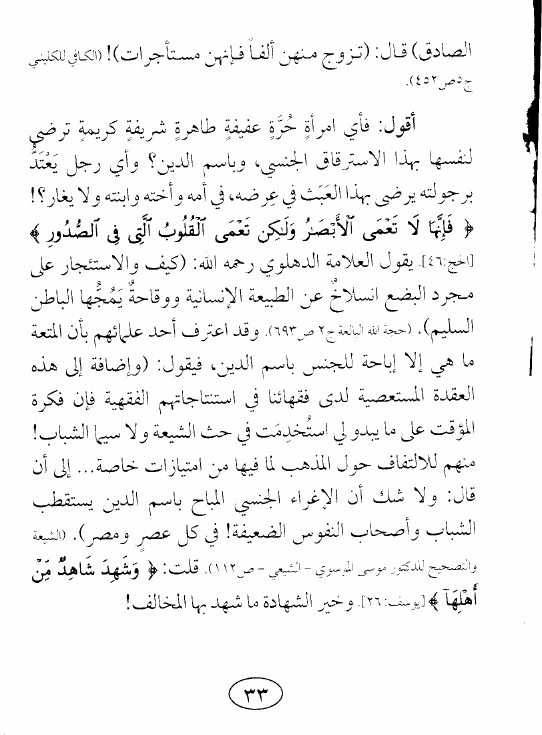 الصادق) قال: (تزوج منهن ألفاً فإنهن مستأجرات)! (الكافي للكليني
ج٥ص٤٥٢).
أقول: فأي امرأةٍ حُرَّةٍ عفيفةٍ طاهرةٍ شريفةٍ كريمةٍ ترضى
لنفسها بهذا الاسترقاق الجنسي، وباسم الدين؟ وأي رجل يَعْتَدُّ
برجولته يرضى بهذا العَبَث في عِرضه، في أمه وأخته وابنته ولا يغار؟!
﴿ فَإِنَّهَا لَا تَعْمَى ٱلْأَبْصَٰرُ وَلَٰكِن تَعْمَى ٱلْقُلُوبُ ٱلَّتِي فِي ٱلصُّدُورِ ﴾
[الحج:٤٦]. يقول العلامة الدهلوي رحمه الله: (كيف والاستئجار على
مجرد البضع انسلاخٌ عن الطبيعة الإنسانية ووقاحةٌ يَمُجُّها الباطن
السليم). (حجة الله البالغة ج٢ ص٦٩٣). وقد اعترف أحد علمائهم بأن المتعة
ما هي إلا إباحة للجنس باسم الدين، فيقول: (وإضافة إلى هذه
العقدة المستعصية لدى فقهائنا في استنتاجاتهم الفقهية فإن فكرة
المؤقت على ما يبدو لي استُخدِمَت في حث الشيعة ولا سيما الشباب!
منهم للالتفاف حول المذهب لما فيها من امتيازات خاصة... إلى أن
قال: ولا شك أن الإغراء الجنسي المباح باسم الدين يستقطب
الشباب وأصحاب النفوس الضعيفة! في كل عصرٍ ومصر). (الشيعة
والتصحيح للدكتور موسى الموسوي - الشيعي - ص١١٢). قلت: ﴿ وَشَهِدَ شَاهِدٌ مِّنْ
أَهْلِهَآ ﴾ [يوسف:٢٦]. وخير الشهادة ما شهد بها المخالف!
٣٣